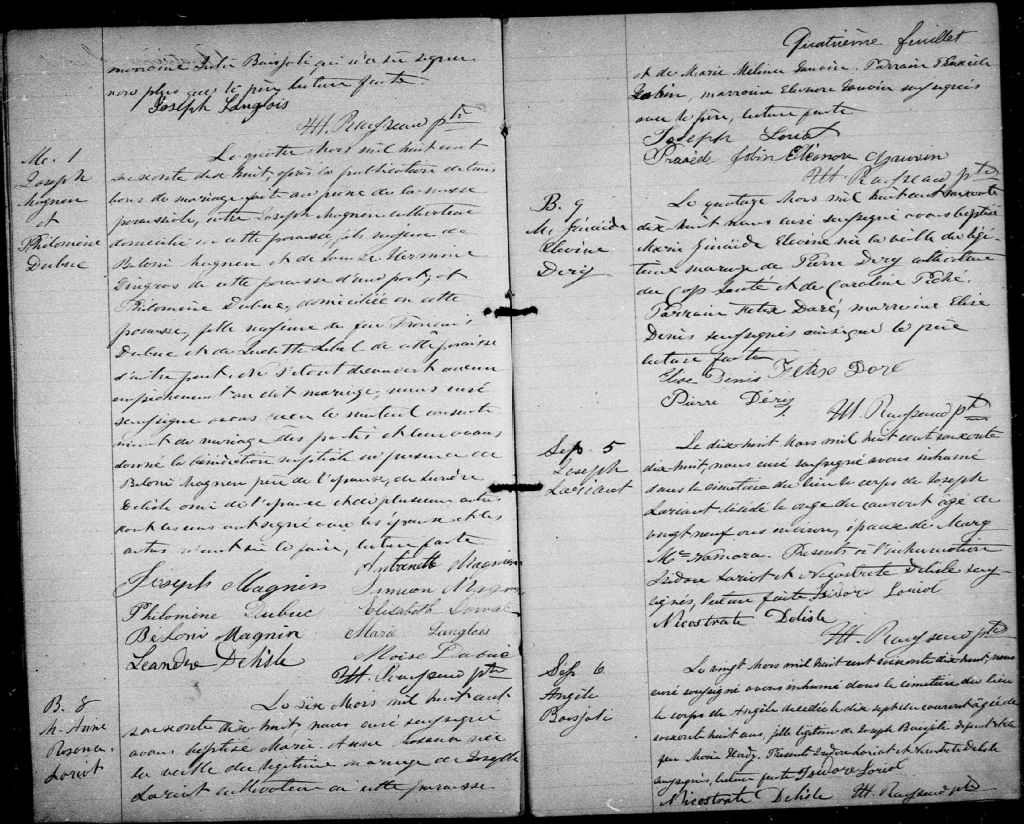 marraine Julie Boisjoli qui n'a su signer
non plus que le père lecture faite
Joseph Langlois
Ht. Rousseau ptre
Ma. 1
Joseph
Magnan
et
Philomène
Dubuc
Le quatre Mars mil huit cent
soixante dix huit, après la publication de trois
bans de mariage faite au prône de la messe
paroissiale, entre Joseph Magnan cultivateur
domicilié en cette paroisse, fils majeur de
Beloni Magnan et de Louise Hermine
Gingras de cette paroisse d'une part; et
Philomène Dubuc, domiciliée en cette
paroisse, fille majeure de feu François
Dubuc et de Judith Lebel de cette paroisse
d'autre part. Ne s'étant découvert aucun
empêchement au dit mariage, nous curé
soussigné avons reçu le mutuel consente
ment de mariage des parties et leur avons
donné la bénédiction nuptiale en présence de
Beloni Magnan père de l'époux, de Leandre
Delisle ami de l'épouse et de plusieurs autres
dont les uns ont signé avec les époux et les
autres n'ont su le faire, lecture faite
Joseph Magnin Antoinette Magnin
Philomène Dubuc Simeon
Beloni Magnin Elisabeth
Leandre Delisle Marie Langlois
Moïse Dubuc
Ht. Rousseau ptre
B. 8
M. Anne
Rosana
Loriot
Le six Mars mil huit cent
soixante dix huit nous curé soussigné
avons baptisé Marie Anne Rosana née
la veille du légitime mariage de Joseph
Loriot cultivateur de cette paroisse
Quatrième feuillet
et de Marie Melina Gauvin. Parrain Praxède
Jobin, marraine Eleonore Gauvin soussignés
avec le père, lecture faite
Joseph Loriot
Praxède Jobin Eléonore Gauvin
Ht. Rousseau ptre
B. 9
M. Ginaïde
Elevine
Dery
Le quatorze Mars mil huit cent soixante
dix huit nous curé soussigné avons baptisé
Marie Ginaïde Elevine née la veille du légi-
time mariage de Pierre Dery cultivateur
du Cap Santé et de Caroline Piché.
Parrain Felix Doré, marraine Elise
Denis soussignés ainsi que le père
lecture faite
Elise Denis Felix Doré
Pierre Déry
Ht. Rousseau ptre
Sep. 5
Joseph
Loriaut
Le dix-huit Mars mil huit cent soixante
dix huit, nous curé soussigné avons inhumé
dans le cimetière du lieu le corps de Joseph
Loriaut décédé le onze du courant âgé de
vingt neuf ans environ, époux de Marg
Présents à l'inhumation
Isidore Loriot et Nicostrate Delisle sous-
signés, lecture faite Isidore Loriot
Nicostrate Delisle
Ht. Rousseau ptre
Sep. 6
Angèle
Boisjoli
Le vingt Mars mil huit cent soixante dix huit, nous
curé soussigné avons inhumé dans le cimetière du lieu
le corps de Angèle décédée le dix sept du courant âgée de
soixante huit ans, fille légitime de Joseph Boisjoli défunt et de
feu Marie Hardy. Présents Isidore Loriot et Nicostrate Delisle
soussignés, lecture faite Isidore Loriot
Nicostrate Delisle Ht. Rousseau ptre